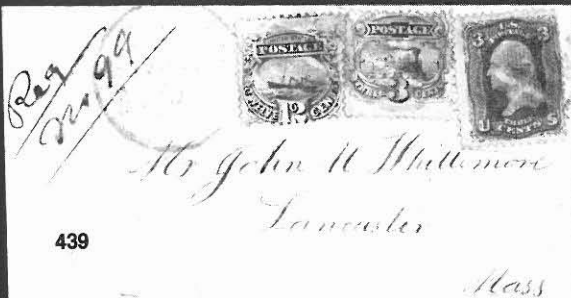 Reg
No, 99
POSTAGE
12
POSTAGE
3
U.S.
3 3
U S
THREE
CENTS
Mr John Whittemore
Lancaster
439
Mass